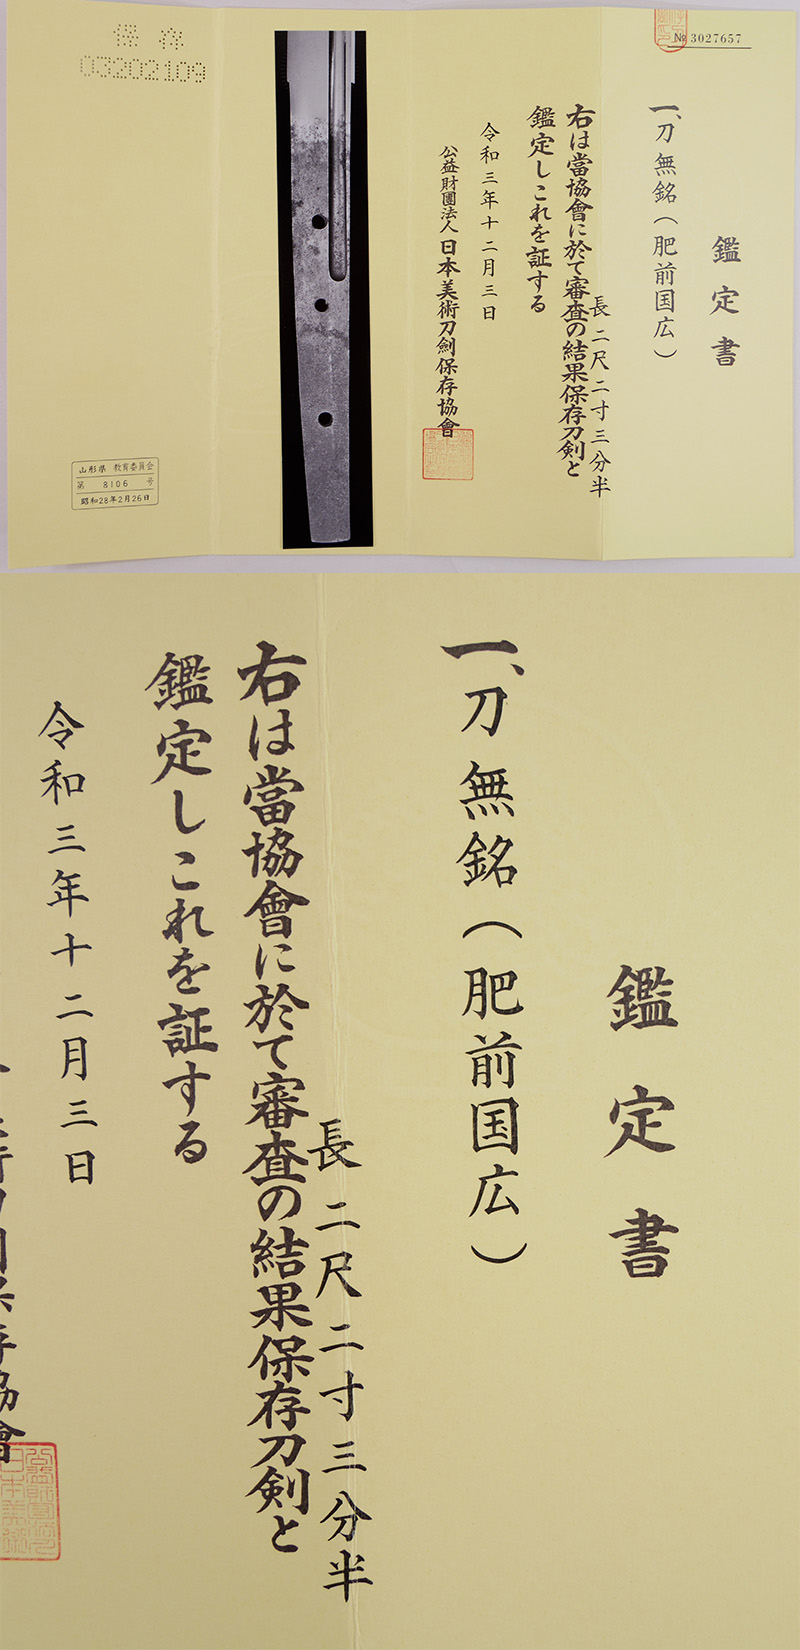 № 3027657
鑑定書
一、刀 無銘（肥前国広）
長 二尺二寸三分半
右は當協會に於て審査の結果保存刀剣と
鑑定しこれを証する
令和三年十二月三日
公益財團法人 日本美術刀劍保存協會
保存
03202109
山形県 教育委員会
第 8106 号
昭和28年2月26日
鑑定書
一、刀 無銘（肥前国広）
長 二尺二寸三分半
右は當協會に於て審査の結果保存刀剣と
鑑定しこれを証する
令和三年十二月三日